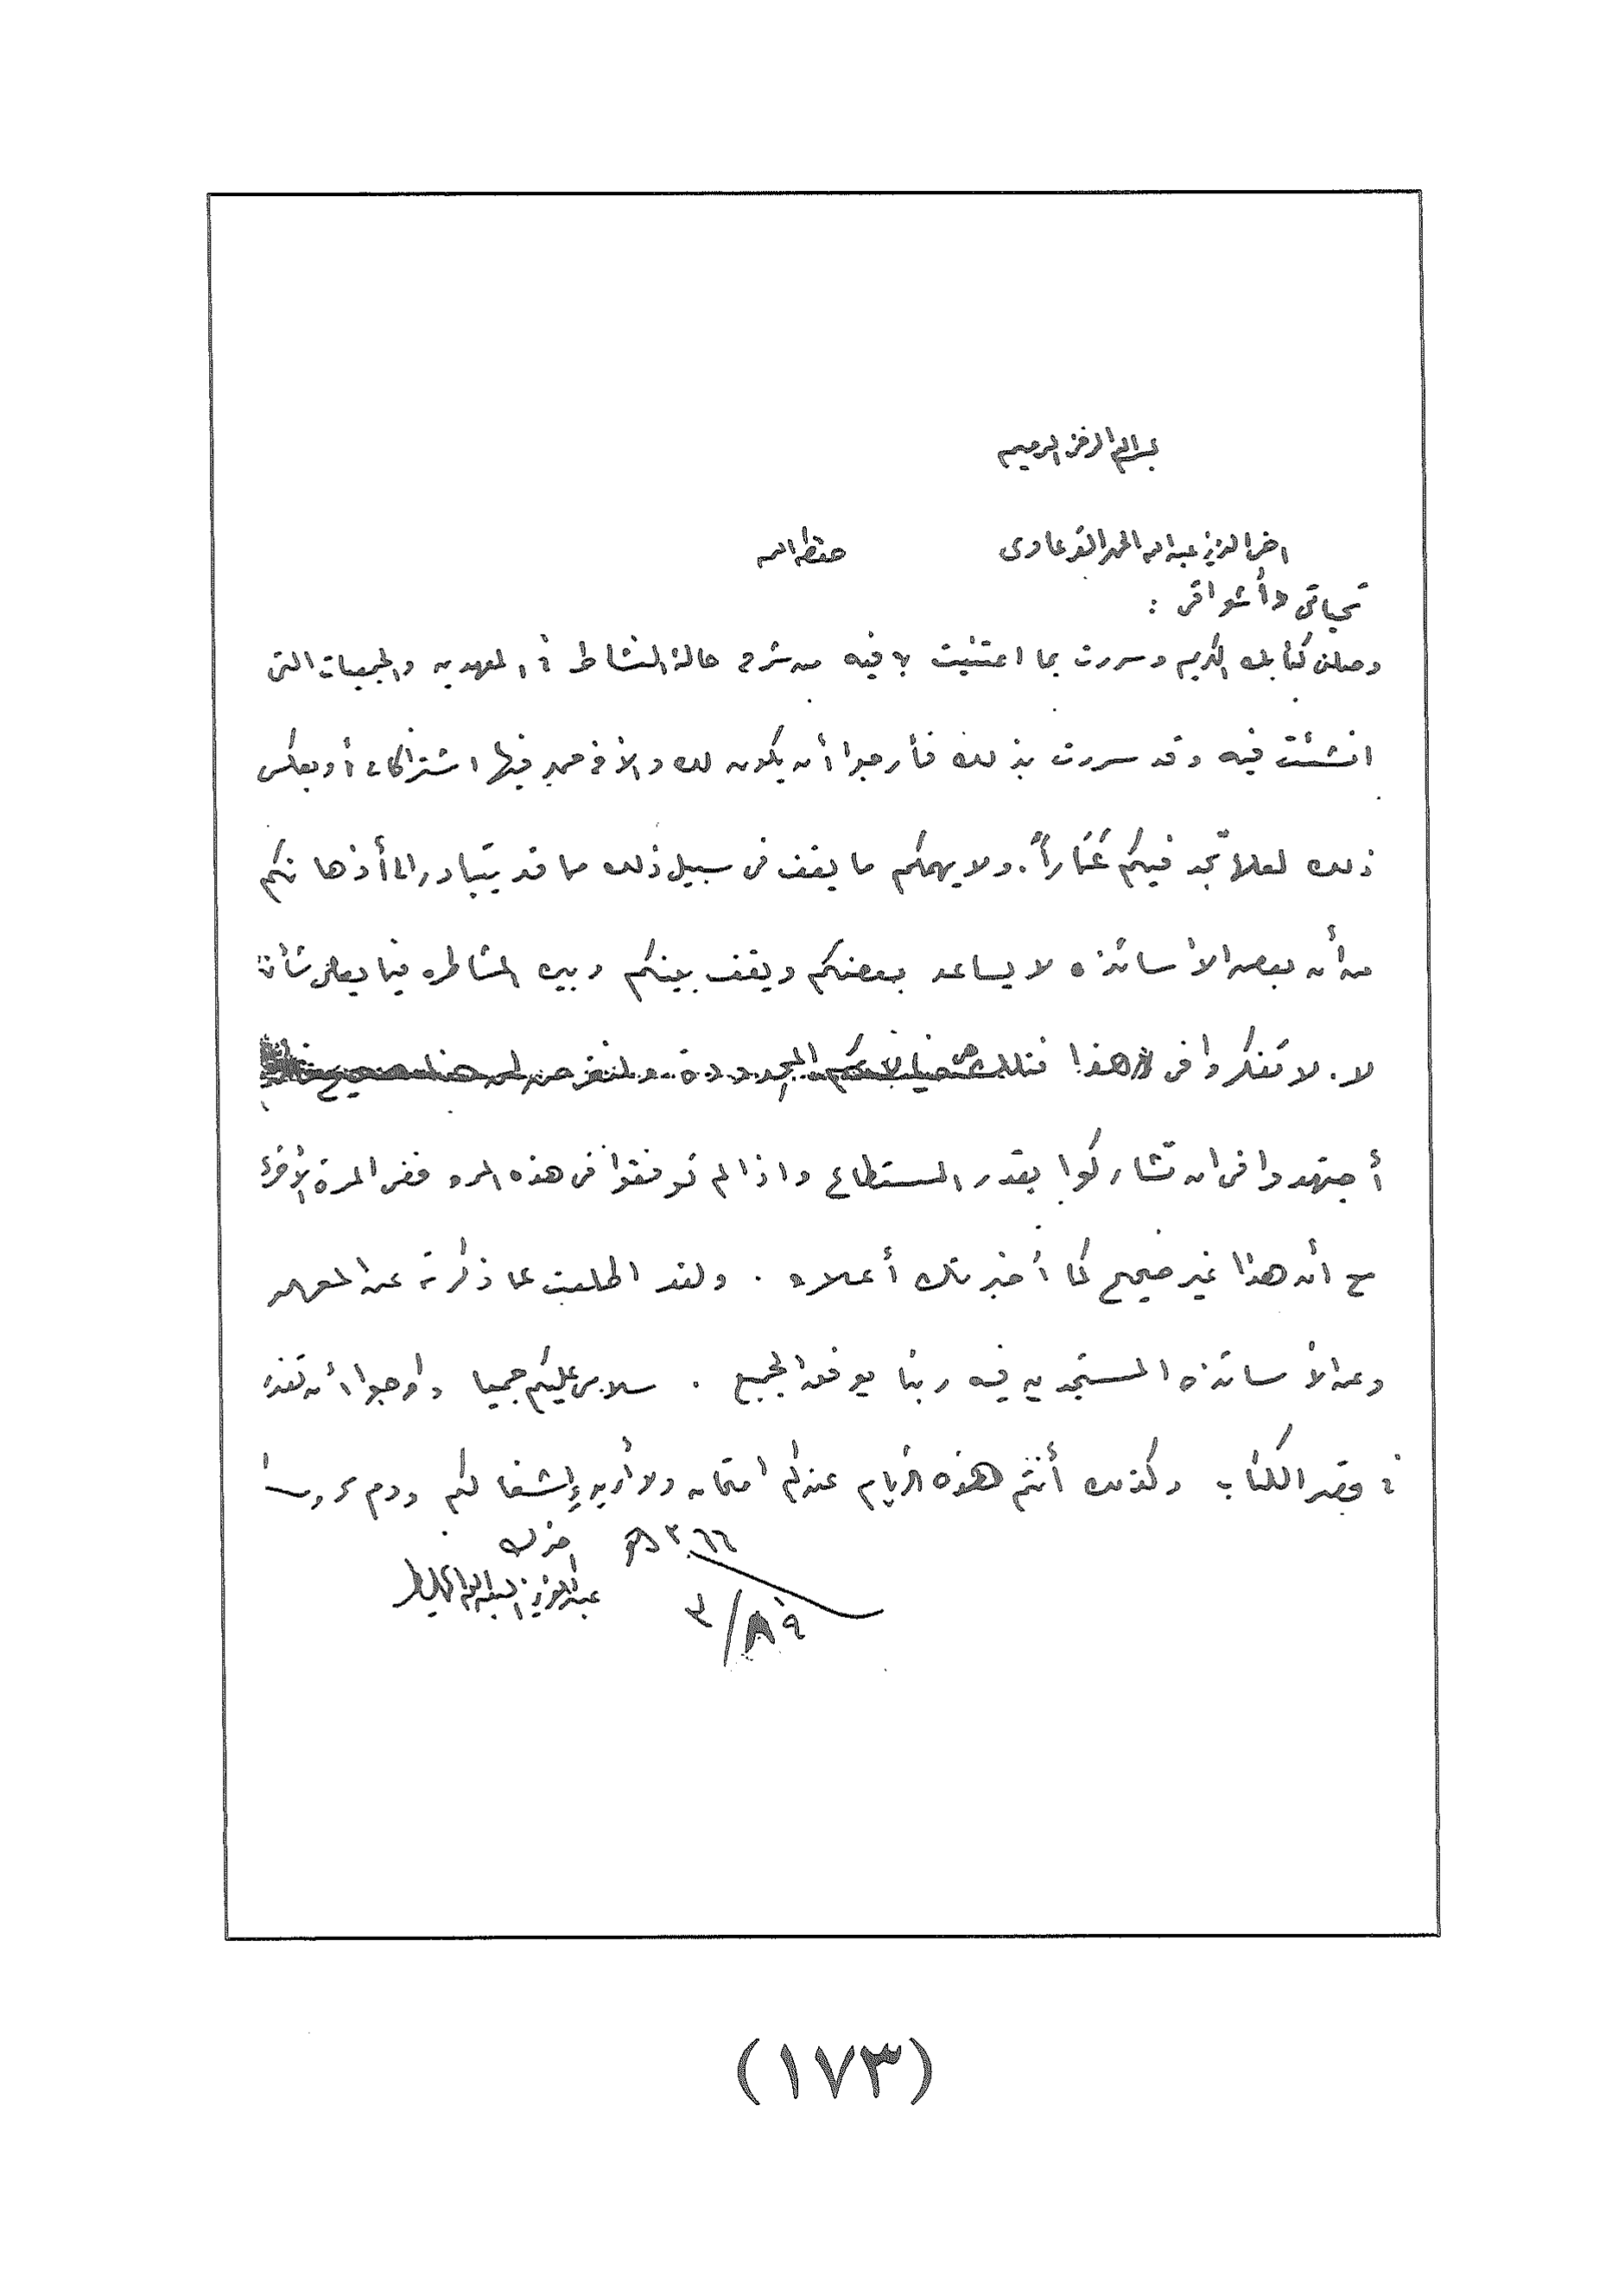 بسم الله الرحمن الرحيم
اخي العزيز عبدالله الحمد القرعاوي حفظه الله
تحياتي وأشواقي :
وصلني كتابك الكريم وسررت بما اعتنيت به فيه من شرح حالة النشاط في المعهدين والجمعيات التي
انشئت فيه وقد سررت بذلك فأرجوا أن يكون لك والأخ فيها اشتراكات أو بعكس
ذلك لعلا تجد فيكم . ولا يهمكم ما يقف في سبيل ذلك مما قد يتبادر الى أذهانكم
من أن بعض الأساتذه لا يساعد بعضكم ويقف بينكم وبين فيما
لا . لا تفكروا في هذا فتلك
أجتهدوا في ان تشاركوا بقدر المستطاع واذا لم توفقوا في هذه المره ففي المرة الأخرى
مع أن هذا غير صحيح كما أخبرتك أعلاه . ولقد اطلعت عما ذكرته عن المعهد
وعن الأساتذه المستجدين فيه ربنا يوفق الجميع . سلامي عليكم جميعا وأرجوا أن تعذر
في قصر الكتاب وكذلك أنتم هذه الأيام عندكم امتحان ولا أريد إشغالكم ودم محروسا
اخوك
عبدالعزيز
(١٧٣)